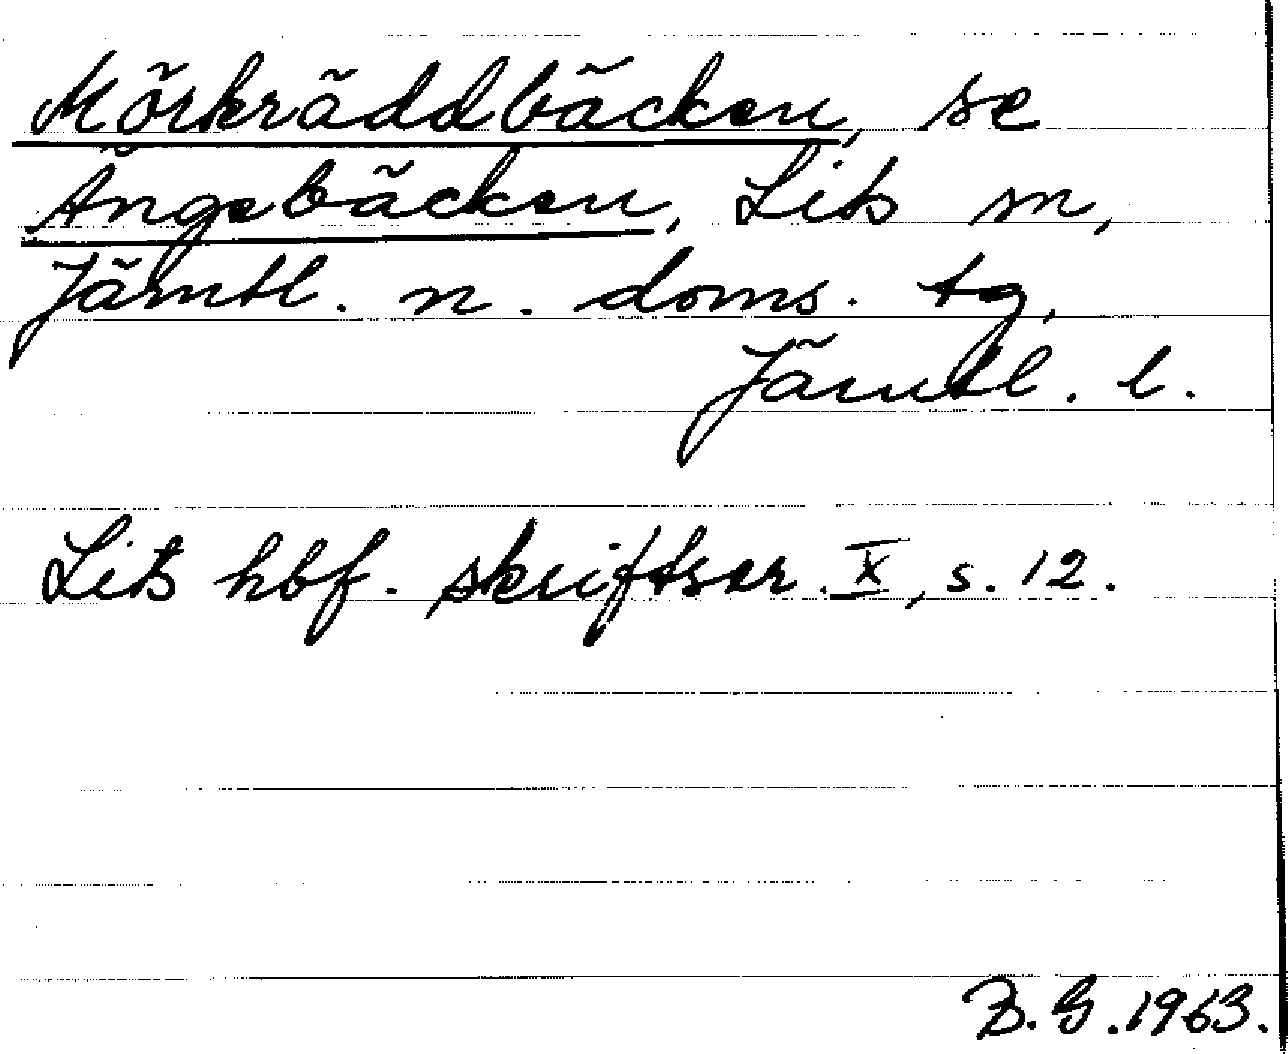 Mörkräddbäcken, se
Ängebäcken, Lits sn,
Jämtl. n. doms. tg,
Jämtl. l.
Lits hbf. skriftser. X, s. 12.
B. G. 1963.